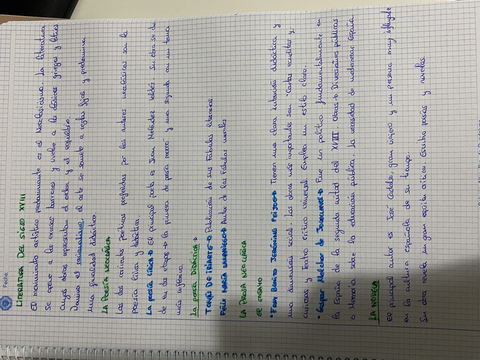 LITERATURA DEL SIGLO XVIII
El movimiento artístico predominante es el Neoclasicismo. La literatura
se opone a los excesos barrocos y vuelve a los clásicos griegos y latinos
cuyas obras representan el orden y el equilibrio.
Domina el racionalismo, el arte se somete a reglas fijas y predomina
una finalidad didáctica.
LA POESÍA NEOCLÁSICA
Las dos variantes poéticas por los autores neoclásicos son la
poesía lírica y didáctica.
LA POESÍA LÍRICA → El principal poeta es Juan Meléndez Valdés. Su obra
de dos etapas → la primera de poesía y una segunda en un tono
más reflexivo.
LA POESÍA DIDÁCTICA →
TOMÁS DE IRIARTE → Publicación de sus Fábulas literarias
FÉLIX MARÍA SAMANIEGO → Autor de las Fábulas morales
LA PROSA NEOCLÁSICA
EL ENSAYO
• FRAY BENITO JERÓNIMO FEIJOO → Tienen una clara intención didáctica y
una dimensión social. Las obras más importante son Cartas eruditas y
curiosas y Teatro crítico universal. Emplea un estilo claro.
• Gaspar Melchor de Jovellanos → Fue un político fundamentalmente en
la España de la segunda mitad del XVIII. Obras → Diversiones públicas
o Memoria sobre la educación pública. La necesidad de modernizar España
LA NOVELA
El principal autor es José Cadalso, gran viajero y un personaje muy influyente
en la cultura española de su tiempo.
Su obra revela un gran espíritu crítico. Escribe poesías y novelas